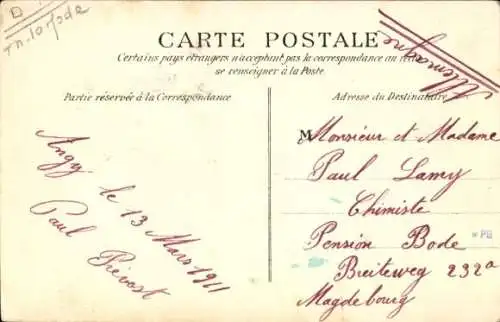 D
CARTE POSTALE
Allemagne
Certains pays étrangers n'acceptant pas la correspondance au recto
se renseigner à la Poste.
Partie réservée à la Correspondance
Adresse du Destinataire
Angy
le 13 Mars 1911
Paul Prévost
Monsieur et Madame
Paul Lamy
Chimiste
Pension Bode
Breiteweg 232a
Magdebourg